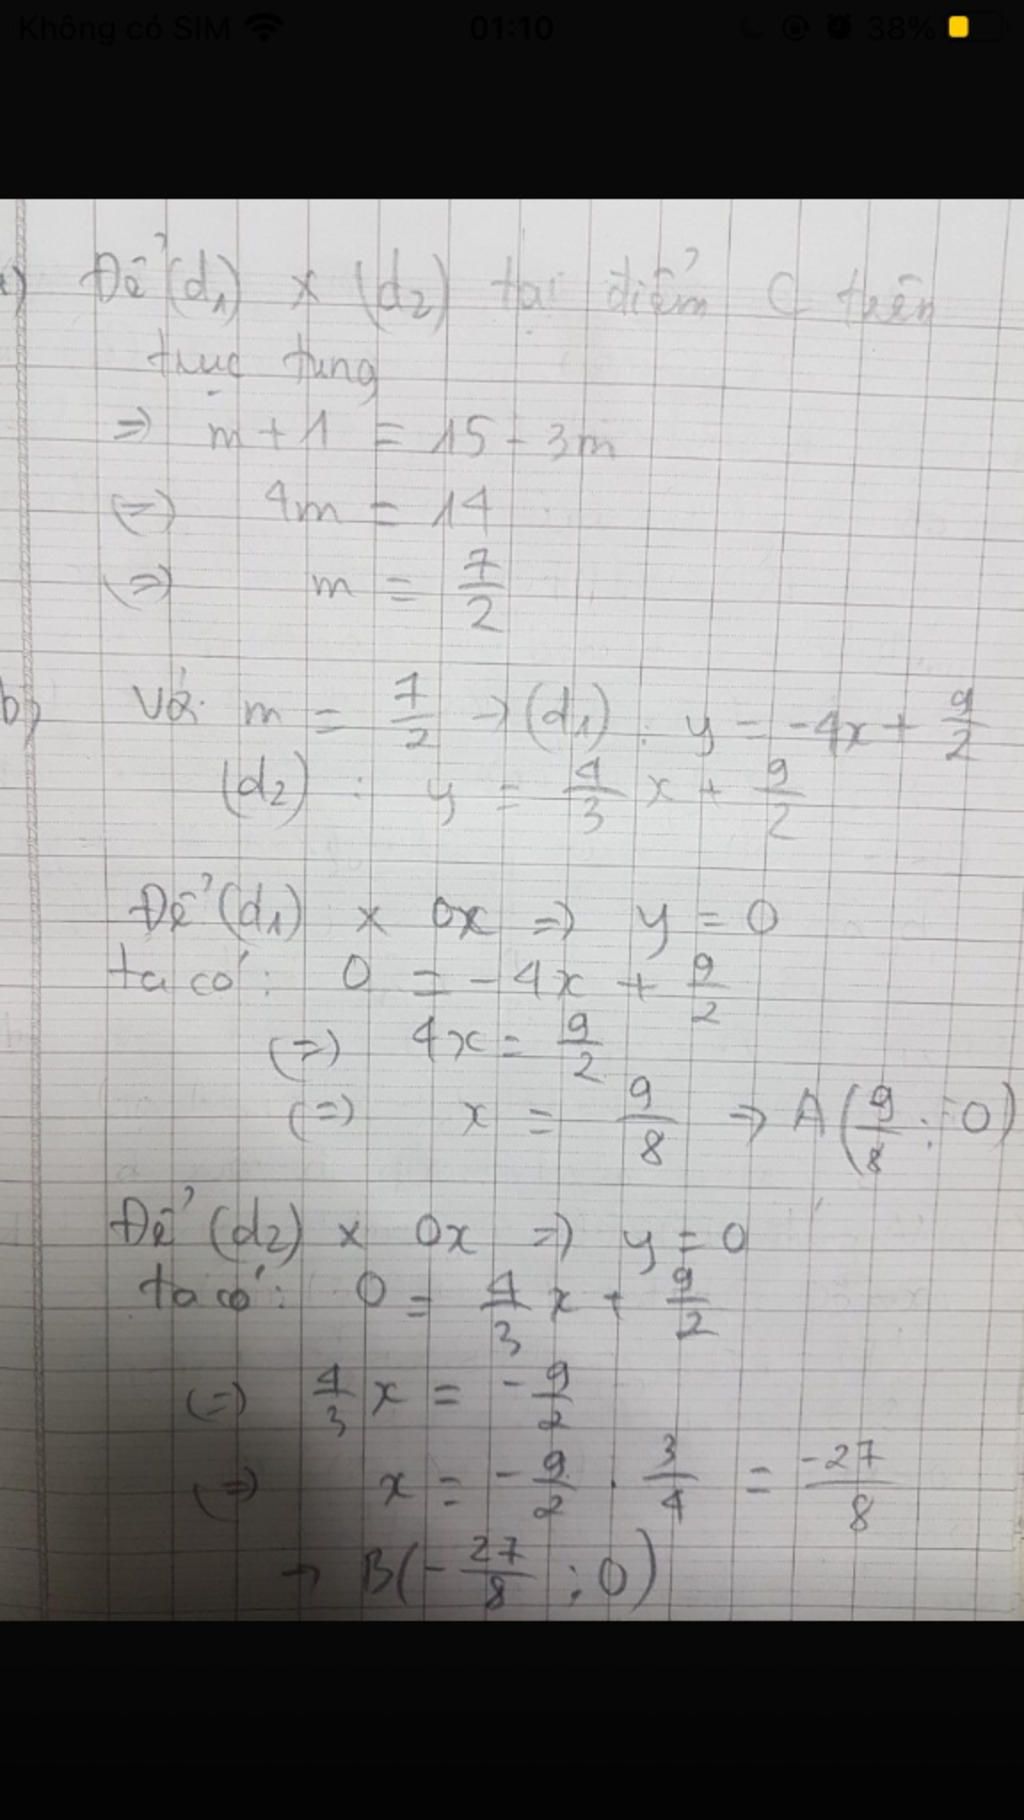 Không có SIM 01:10 38%
a) Để (d₁) x (d₂) tại điểm C trên
trục tung
=> m + 1 = 15 - 3m
(=) 4m = 14
(=) m = 7/2
b) Với m = 7/2 → (d₁) : y = -4x + 9/2
(d₂) : y = 4/3 x + 9/2
Để (d₁) x 0x => y = 0
ta có : 0 = -4x + 9/2
(=) 4x = 9/2
(=) x = 9/8 => A(9/8 ; 0)
Để (d₂) x 0x => y = 0
ta có : 0 = 4/3 x + 9/2
(=) 4/3 x = -9/2
(=) x = -9/2 . 3/4 = -27/8
→ B(-27/8 ; 0)